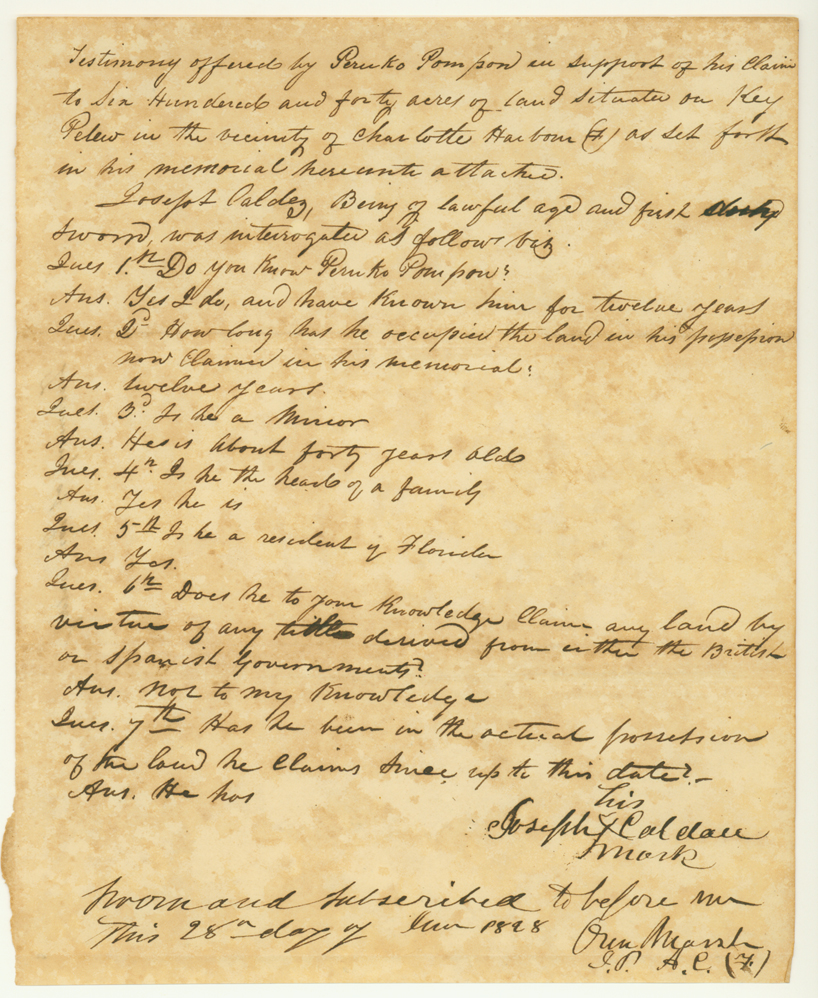 Testimony offered by Peruko Pompon in support of his Claim
to Six Hundred and forty acres of land situate on Key
Pelew in the vicinity of Charlotte Harbour (F) as set forth
in his memorial hereunto attached.
Joseph Caldez, Being of lawful age and first duly
sworn, was interrogated as follows viz.
Ques 1.st Do you Know Peruko Pompon?
Ans. Yes I do, and have Known him for twelve years
Ques. 2d How long has he occupied the land in his possession
now Claimed in his memorial?
Ans. twelve years.
Ques. 3d Is he a Minor
Ans. He is about forty years old
Ques. 4th Is he the head of a family
Ans. Yes he is
Ques. 5th Is he a resident of Florida
Ans Yes.
Ques. 6th Does he to your Knowledge Claim any land by
virtue of any title derived from either the British
or Spanish Governments?
Ans. Not to my Knowledge
Ques. 7th Has he been in the actual possession
of the land he Claims since up to this date?
Ans. He has
his
Joseph X Caldez
mark
Sworn and subscribed to before me
This 28th day of 1828
Marsh
J.P. A.C. (F)